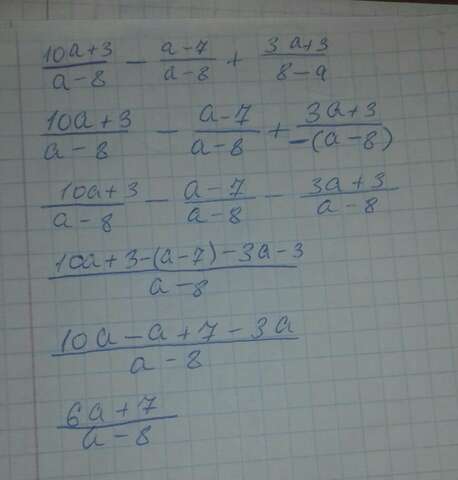 (10a+3)/(a-8) - (a-7)/(a-8) + (3a+3)/(8-a)
(10a+3)/(a-8) - (a-7)/(a-8) + (3a+3)/(-(a-8))
(10a+3)/(a-8) - (a-7)/(a-8) - (3a+3)/(a-8)
(10a+3-(a-7)-3a-3)/(a-8)
(10a-a+7-3a)/(a-8)
(6a+7)/(a-8)